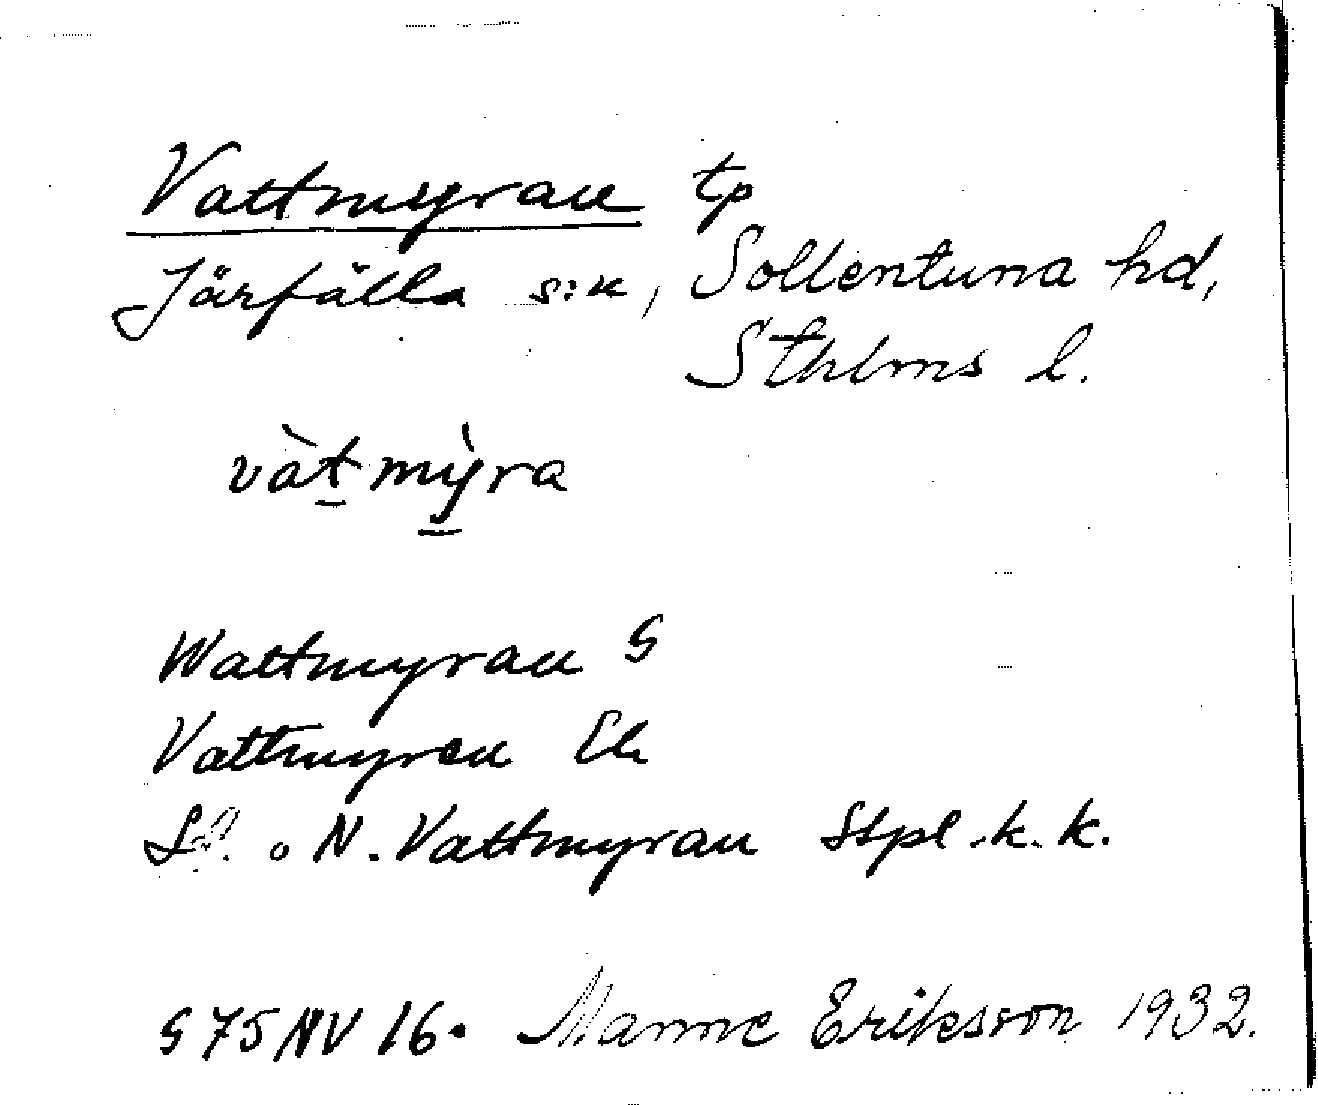 Vattmyran tp
Järfälla s:n, Sollentuna hd,
Sthlms l.
vàt mỳra
Wattmyran G
Vattmyran Ek
L:a. o N. Vattmyran Stpl.k.k.
G 75 NV 16. Manne Eriksson 1932.